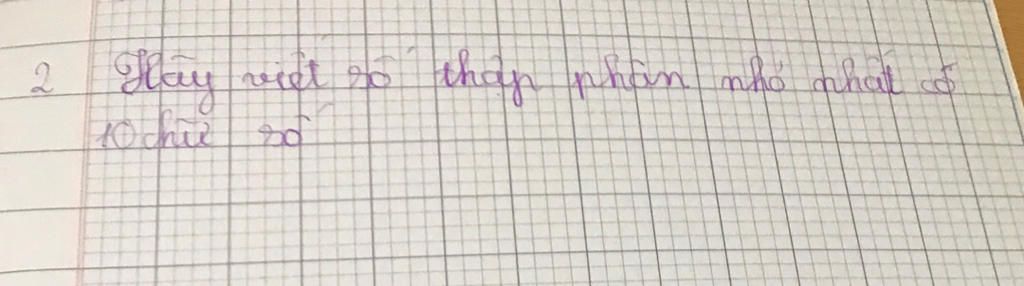 2 Hãy viết số thập phân nhỏ nhất có
10 chữ số